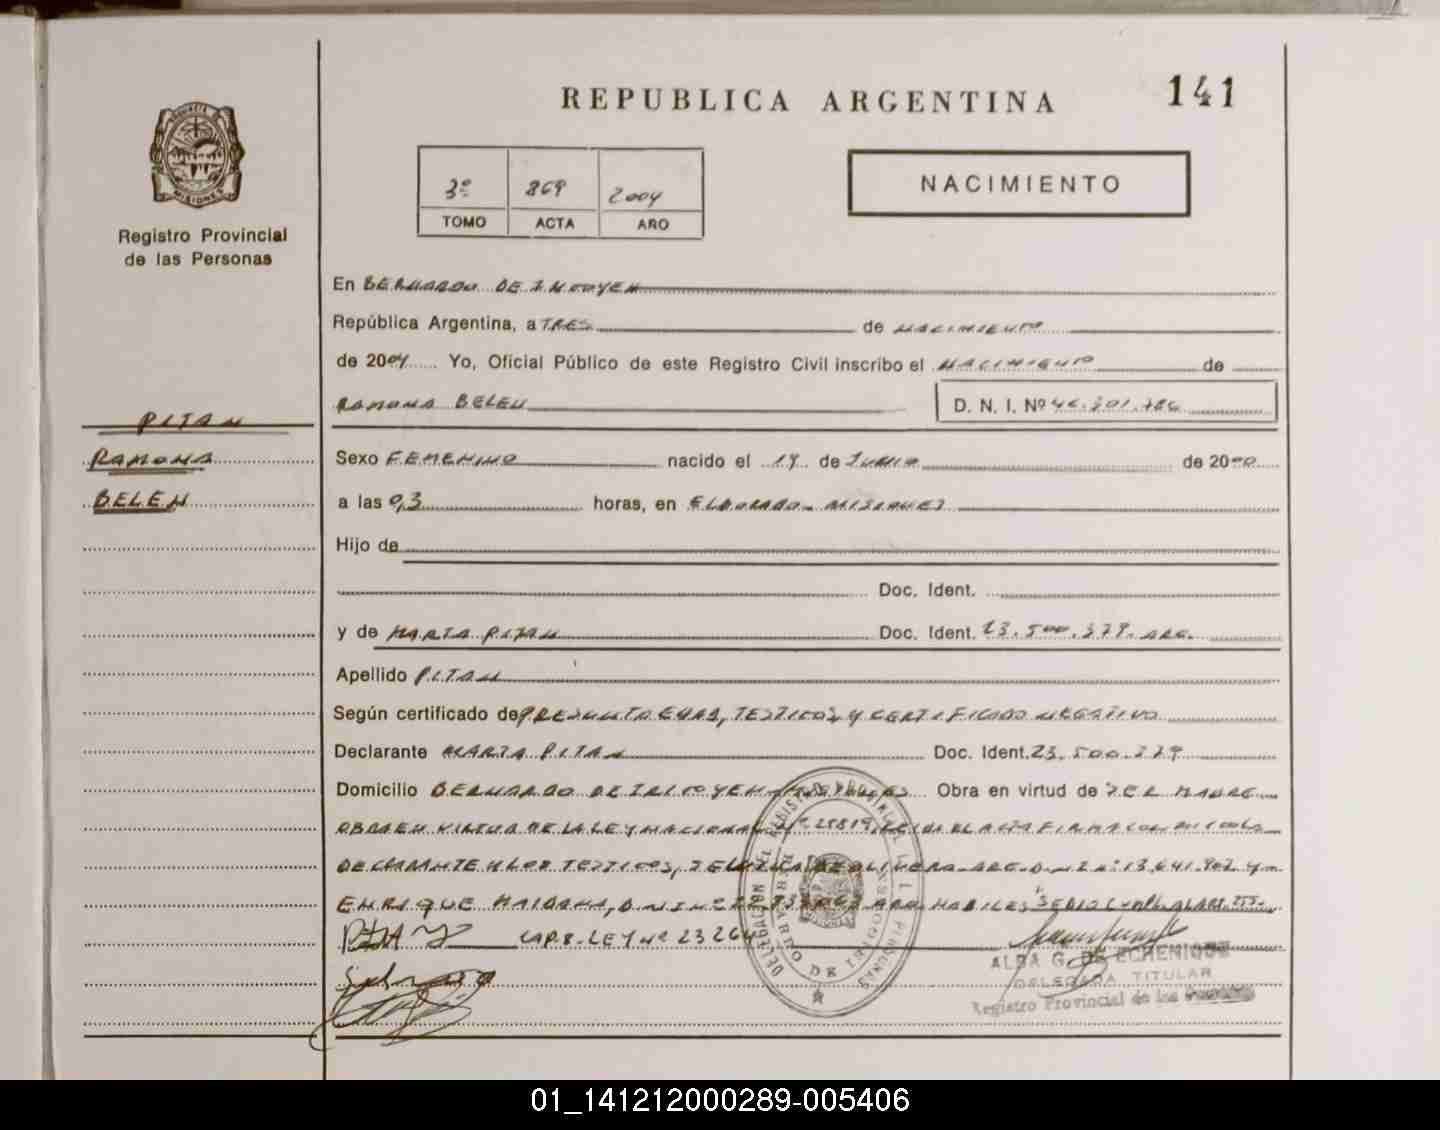 REPUBLICA ARGENTINA
141
PROVINCIA DE MISIONES
Registro Provincial
de las Personas
3º 869 2004
TOMO ACTA AÑO
NACIMIENTO
En BERNARDO DE IRIGOYEN
República Argentina, a TRES de NACIMIENTO
de 2004 Yo, Oficial Público de este Registro Civil inscribo el NACIMIENTO de
RAMONA BELEN D. N. I. Nº
PITAN
RAMONA
BELEN
Sexo FEMENINO nacido el 19 de JUNIO de 2000
a las 03 horas, en ELDORADO - MISIONES
Hijo de
Doc. Ident.
y de MARTA PITAN Doc. Ident. 23.500.379. ARG.
Apellido PITAN
Según certificado de PRESUNTA EDAD, TESTIGOS Y CERTIFICADO NEGATIVO
Declarante MARTA PITAN Doc. Ident. 23.500.379
Domicilio BERNARDO DE IRIGOYEN - MISIONES Obra en virtud de SER MADRE
OBRA EN VIRTUD DE LA LEY NACIONAL Nº 25819, LEIDA EL ACTA FIRMA CONMIGO LA
DECLARANTE Y LOS TESTIGOS, DE OLIVERA ARG. D.N.I. Nº: 13.641.902 Y
ENRIQUE MAIDANA, D.N.I. Nº ARG. HABILES
PITAN CAP. 8. LEY Nº 23264
ALBA G. DE ECHENIQUE
DELEGADA TITULAR
Registro Provincial de las Personas
DELEGACION DEL REGISTRO PROVINCIAL DE LAS PERSONAS
BERNARDO DE IRIGOYEN
01_141212000289-005406